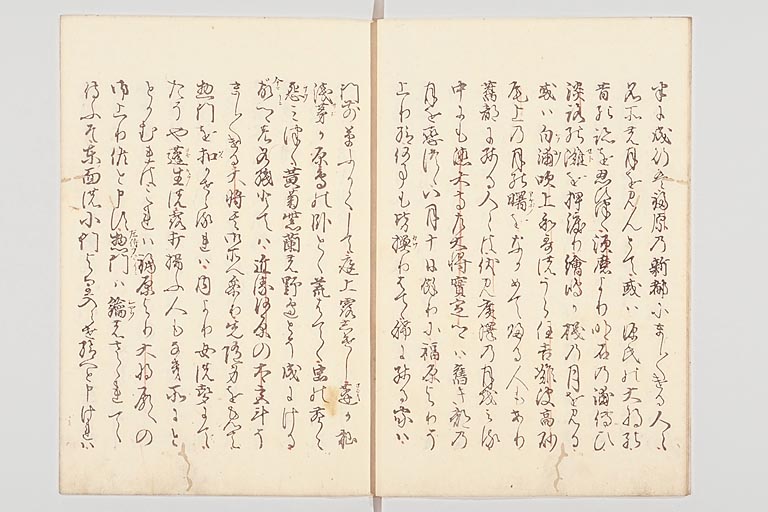 半に成行は福原乃新都にましましける人々
名所の月をみんとて或は源氏の大将の
昔の跡を思つゝ須磨より明石の浦傳ひ
淡路の灘を押渡り繪嶋か礒の月をみる
或は白浦吹上和哥浦住吉難波高砂
尾上の月の曙をなかめて帰る人もあり
舊都に残る人々は伏見廣澤の月をみる
中にも徳大寺左大将實定卿は舊き都の
月を恋つゝ八月十日餘りに福原よりそ
上り給何事も皆換りはてゝ稀に残る家は
門前草ふかくして庭上露しけし蓬か杣
浅茅か原鳥の卧とと荒はてゝ虫の声々
怨みつゝ黄菊紫蘭の野邊とそ成にける
名残とては近衛河原の大宮計そ
ましましける大将其御所へ参り先随身をもて
惣門を扣かせらるれは内より女の声にて
たそや蓬生の露打拂ふ人もなき所にと
とかむれはこれは福原より大将殿の
御上り候と申す惣門は鑰のさゝれて
侍ふそ東面の小門より入せ給へと申けれは